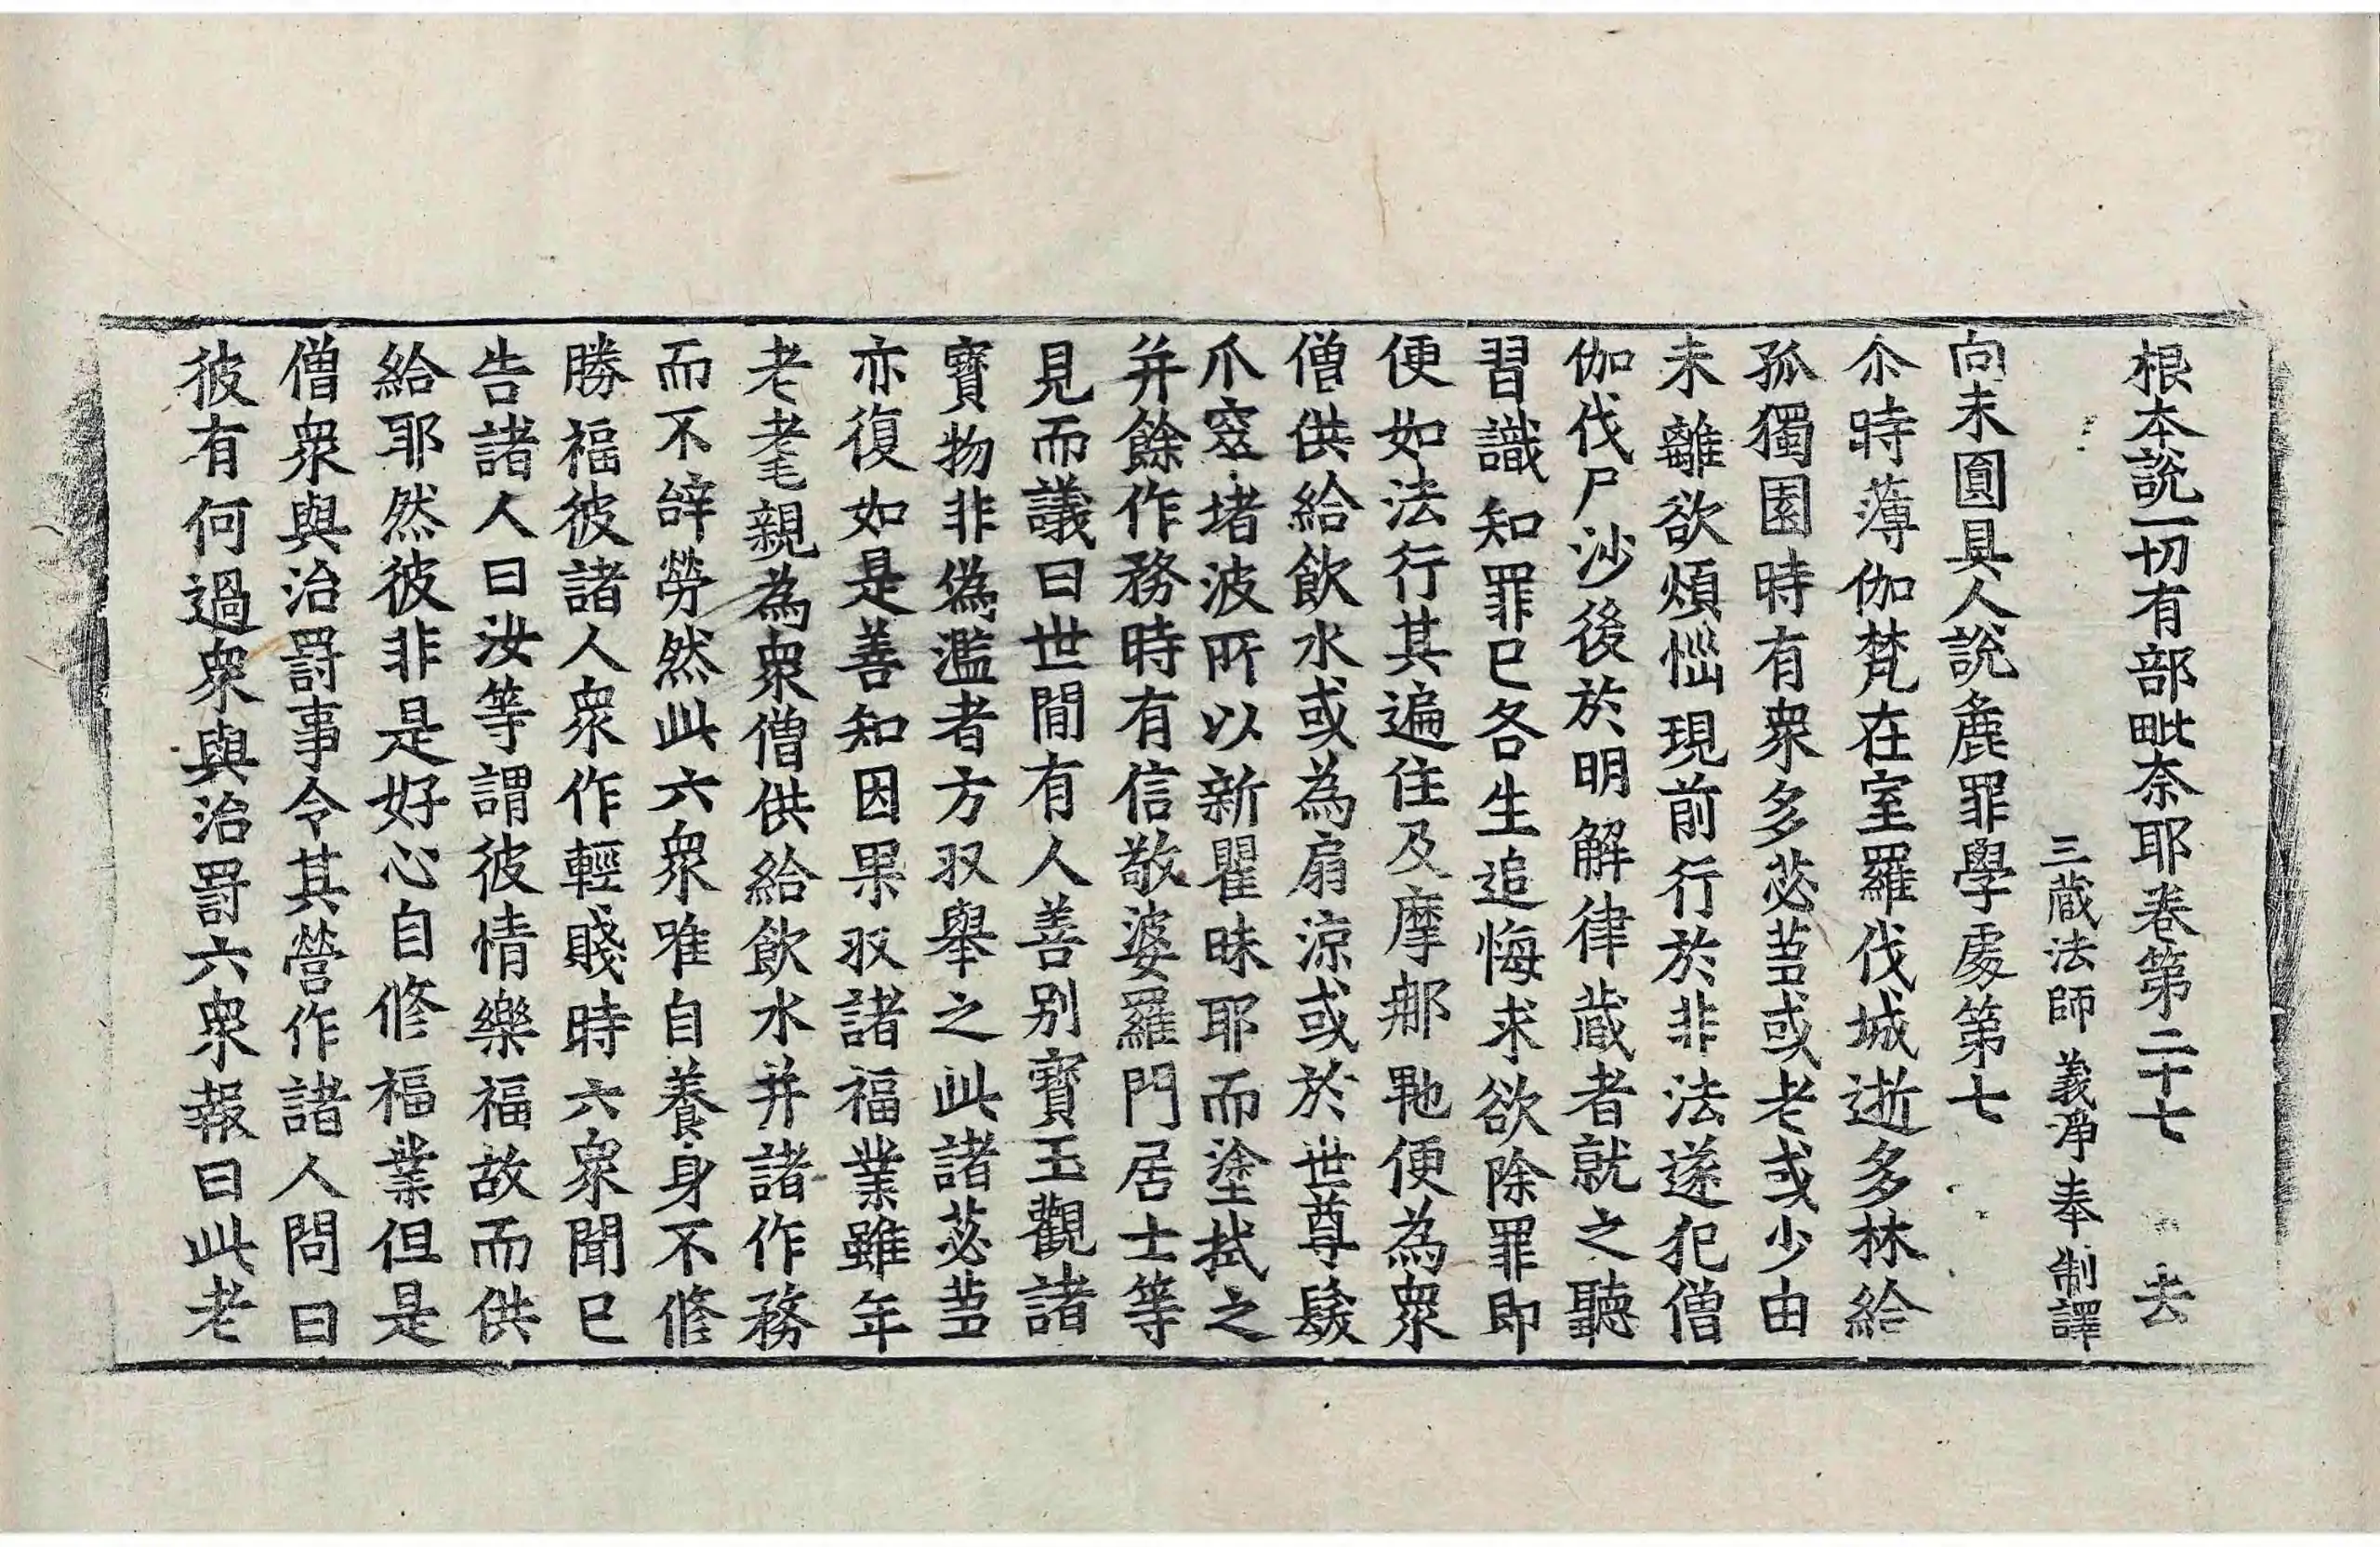 根本說一切有部毗奈耶卷第二十七 去
三蔵法師 義淨奉 制譯
向未圓具人說麁罪學處第七
尒時薄伽梵在室羅伐城逝多林給
孤獨園時有衆多苾芻或老或少由
未離欲煩惱現前行於非法遂犯僧
伽伐尸沙後於明解律蔵者就之聽
習識知罪已各生追悔求欲除罪即
便如法行其遍住及摩那𭅳便為衆
僧供給飲水或為扇涼或於世尊髮
爪窣堵波所以新瞿昧耶而塗拭之
并餘作務時有信敬婆羅門居士等
見而議曰世間有人善別寶玉觀諸
寶物非偽濫者方収舉之此諸苾芻
亦復如是善知因果収諸福業雖年
老耄親為衆僧供給飲水并諸作務
而不辝勞然此六衆唯自養身不修
勝福彼諸人衆作輕賤時六衆聞已
告諸人曰汝等謂彼情樂福故而供
給耶然彼非是好心自修福業但是
僧衆與治罰事令其營作諸人問曰
彼有何過衆與治罰六衆報曰此老